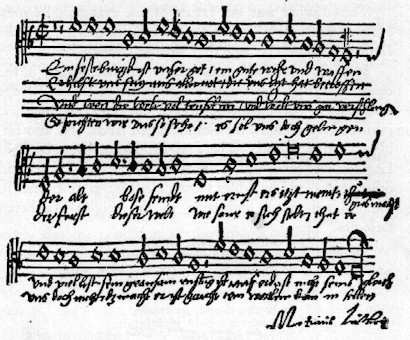 Ein feste burgk ist unser got / ein gute wehr und waffen
Er hilft uns frey aus not / die uns hat betroffen
Und wen die welt vol teuffel wer / und wolt uns gar verschling
So furchten wir uns so sehr / es sol uns doch gelingen
Der alt bose feindt mit ernst ers itzt meint gros macht
der furst dieser welt wie saur er sich stelt thut er
und viel list sein grausam rustung ist auf erd ist nicht seins gleich
uns doch nicht macht er ist gericht ein wortlin kan in fellen
Martinus Luther